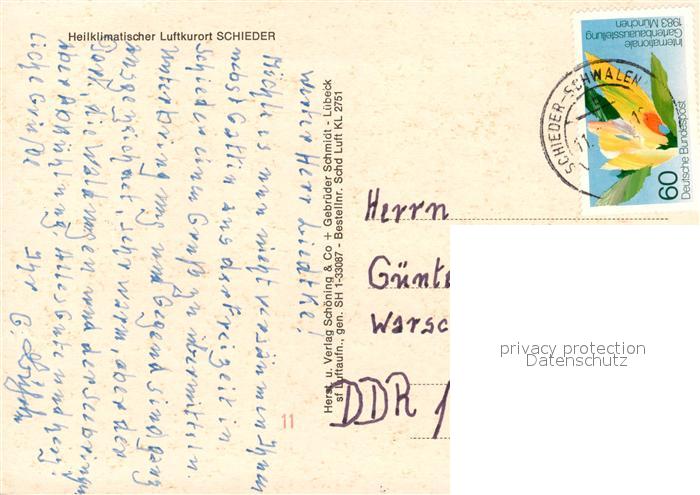 Heilklimatischer Luftkurort SCHIEDER
Werter Herr Liedtke!
Möchte es nun nicht versäumen Ihnen
nebst Gattin aus der Freizeit in
Schieder einen Gruß zu übermitteln.
Unterbringung und Gegend sind ganz
ausgezeichnet, sehr warm, aber der
Dort, die Waldungen und der See bringen
aber Abkühlung. Alles Gute und herz-
liche Grüße
Ihr
Herst. u. Verlag Schöning & Co + Gebrüder Schmidt - Lübeck
sf Luftaufn., gen. SH 1-33087 - Bestellnr. Schd Luft KL 2751
11
Internationale
Gartenbauausstellung
1983 München
60
Deutsche Bundespost
SCHIEDER-SCHWALEN
11.
Herrn
Günte
Warsc
DDR 1
privacy protection
Datenschutz